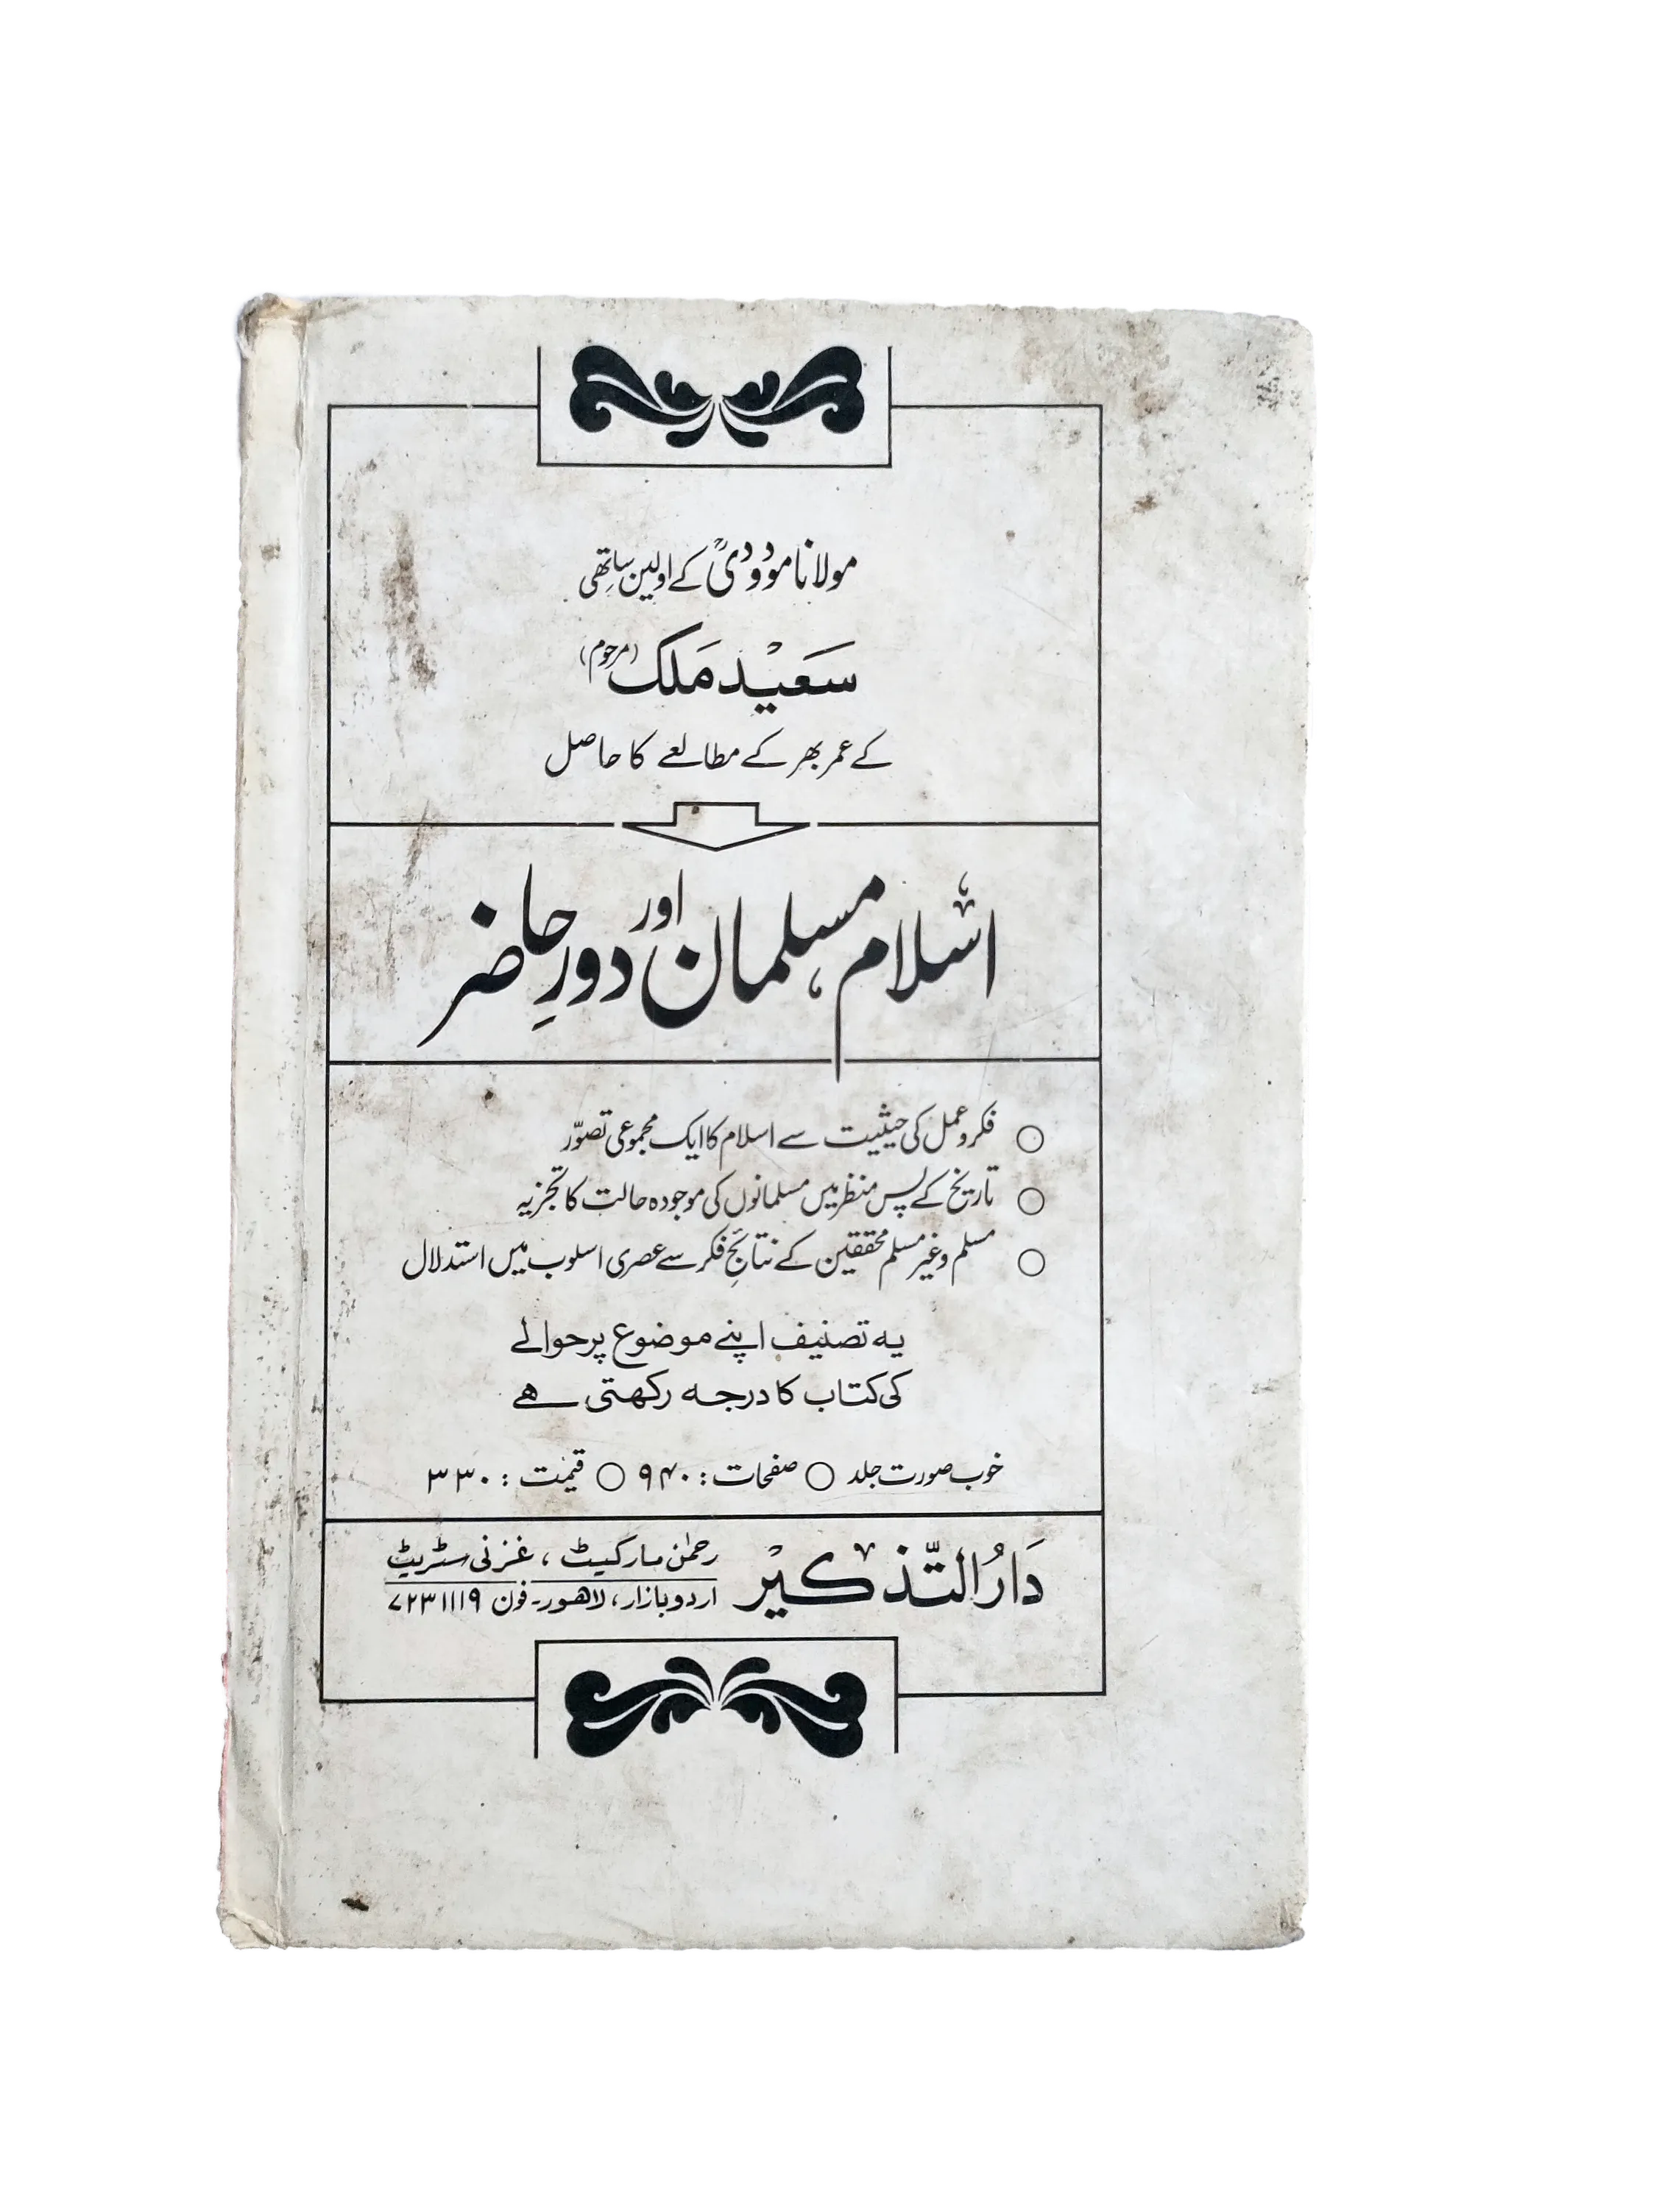 مولانا مودودیؒ کے اولین ساتھی
سَعِیْد مَلک (مرحوم)
کے عمر بھر کے مطالعے کا حاصل
اسلام، مسلمان اور دورِ حاضر
○ فکر و عمل کی حیثیت سے اسلام کا ایک مجموعی تصوّر
○ تاریخ کے پس منظر میں مسلمانوں کی موجودہ حالت کا تجزیہ
○ مسلم و غیر مسلم محققین کے نتائجِ فکر سے عصری اسلوب میں استدلال
یہ تصنیف اپنے موضوع پر حوالے
کی کتاب کا درجہ رکھتی ہے
خوب صورت جلد ○ صفحات : ۹۴۰ ○ قیمت : ۳۳۰
دَارُ التّذکیْر
رحمٰن مارکیٹ ، غزنی سٹریٹ
اردو بازار، لاھور۔ فون ۷۲۳۱۱۱۹